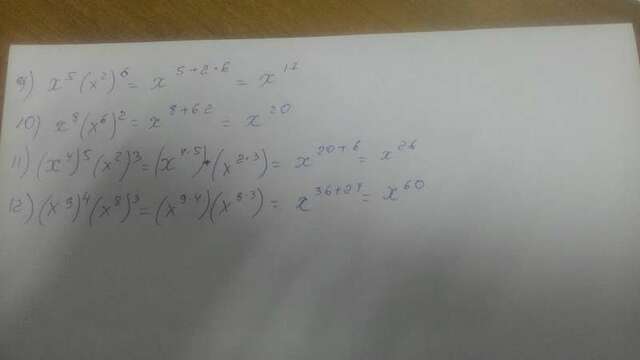 9) x⁵(x²)⁶ = x⁵⁺²·⁶ = x¹⁷
10) x⁸(x⁶)² = x⁸⁺⁶·² = x²⁰
11) (x⁴)⁵(x²)³ = (x⁴·⁵)·(x²·³) = x²⁰⁺⁶ = x²⁶
12) (x⁹)⁴(x⁸)³ = (x⁹·⁴)(x⁸·³) = x³⁶⁺²⁴ = x⁶⁰